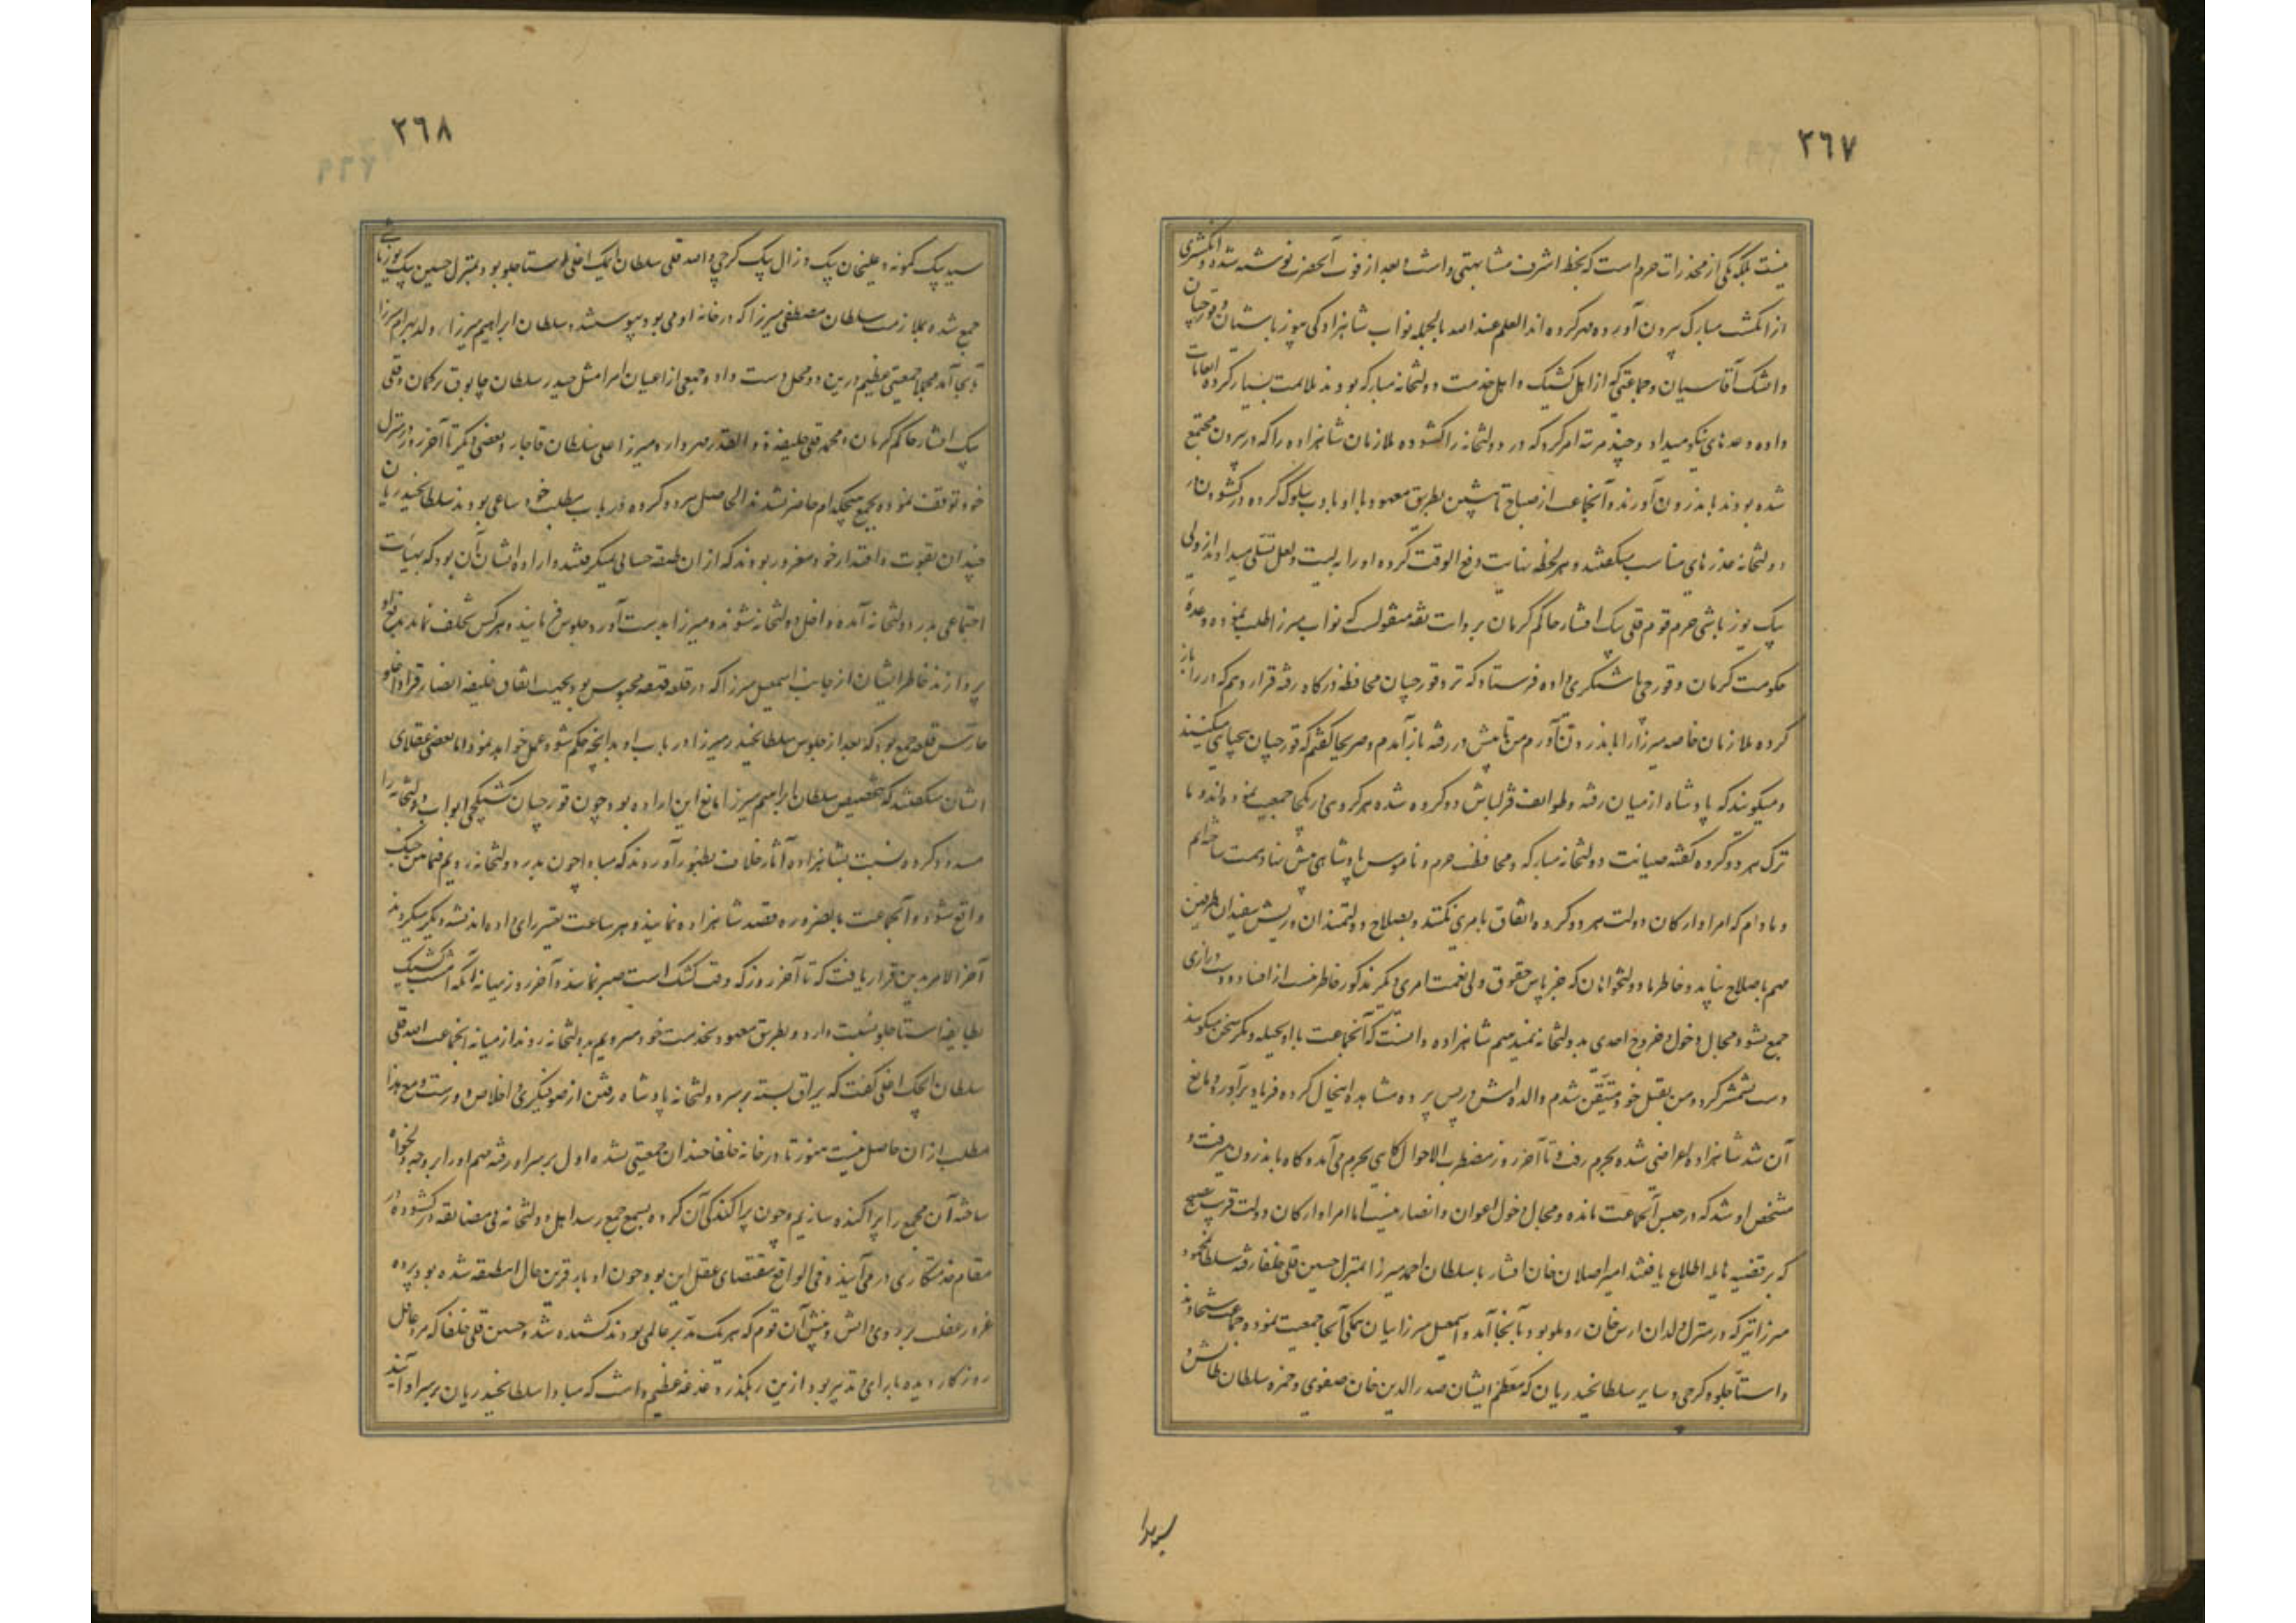 ٣٦٧
نیست بلکه یکی از مخدرات حرم است که بخط اشرف مشابهتی داشت و بعد از فوت آنحضرت نوشته شده و انگشتری
از انگشت مبارک بیرون آورده مهر کرده اند العلم عند الله بالجمله نواب شاهزادگی بیوزباشیان و قورچیان
و ایشک آقاسیان و جماعتی که از اهل کشیک و اهل خدمت دولتخانه مبارکه بودند ملایمت بسیار کرده انعامات
داده وعدهای نیکو میداد و چند مرتبه امر کرد که در دولتخانه را گشوده ملازمان شاهزاده را که در بیرون مجتمع
شده بودند باندرون آورند و آنجماعت از صباح تا پیشین بطریق معهود با او بادب سلوک کرده در گشودن در
دولتخانه عذرهای مناسب میگفتند و هر لحظه بنایت دفع الوقت کرده او را به لیت و لعل تسلی میدادند از ولی
بیک یوزباشی حرم قوم قلی بیک افشار حاکم کرمان بروات ثقه منقولست که نواب میرزا طلب نموده وعدهٔ
حکومت کرمان و قورچی باشیگری داده فرستاد که نزد قورچیان محافظ درگاه رفته قرار دهم که در را باز
کرده ملازمان خاصه میرزا را باندرون آورم من تا پیش در رفته باز آمدم و صریحا گفتم که قورچیان بیحیایی میکنند
و میگویند که پادشاه از میان رفته و طوایف قزلباش دو گروه شده هر گروهی در یکجا جمعیت نموده اند و ما
ترک هر دو گروه گفته صیانت دولتخانه مبارکه و محافظت حرم و ناموس پادشاهی پیش نهاد همت ساخته ایم
و مادام که امرا و ارکان دولت هر دو گروه اتفاق بامری نکنند و بصلاح دولتمندان و ریش سفیدان طرفین
مهم باصلاح نیاید و خاطر ما دولتخواهان که جز پاس حقوق ولی نعمت امری دیگر مذکور خاطر نیست از افساد و دست درازی
جمع نشود مجال دخول و خروج احدی بدولتخانه نمیدهیم شاهزاده دانست که آنجماعت با او بحیله و مکر سخن میگویند
دست بشمشیر کرد و من بقتل خود متیقن شدم والده اش در پس پرده مشاهده اینحال کرده فریاد برآورد و مانع
آن شد شاهزاده اعراضی شده بحرم رفت و تا آخر روز مضطرب الاحوال گاهی بحرم می آمد و گاه باندرون میرفت و
مشخص او شد که در حبس آنجماعت مانده و مجال دخول اعوان و انصار نیست اما امرا و ارکان دولت قریب بصبح
که بر قضیه هایله اطلاع یافتند امیر اصلان خان افشار با سلطان احمد میرزا بمنزل حسین قلی خلفا رفته سلطان محمود
میرزا نیز که در منزل ولدان ارس خان روملو بود بآنجا آمد و اسمعیل میرزاییان همگی آنجا جمعیت نموده جماعت شیخاوند
و استاجلو و گرجی و سایر سلطانحیدریان که معظم ایشان صدرالدین خان صفوی و حمزه سلطان طالش و
٣٦٨
سید بیک کمونه و علیخان بیک و زال بیک گرجی و الله قلی سلطان ایچک اغلی استاجلو بود بمنزل حسین بیک یوزباشی
جمع شده بملازمت سلطان مصطفی میرزا که در خانه او می بود پیوستند و سلطان ابراهیم میرزا ولد بهرام میرزا
بآنجا آمد مجملا جمعیتی عظیم درین دو محل دست داد و جمعی از اعیان امرا مثل حیدر سلطان چابوق ترکمان و قلی
بیک افشار حاکم کرمان و محمد قلی خلیفه ذوالقدر مهردار و میرزا علی سلطان قاجار و بعضی دیگر تا آخر روز در منزل
خود توقف نموده بجمع هیچکدام حاضر نشدند الحاصل هر دو گروه در باب مطلب خود ساعی بودند سلطانحیدریان
چندان بقوت و اقتدار خود مغرور بودند که از آن طبقه حسابی نمیگرفتند و اراده ایشان آن بود که بهیأت
اجتماعی بدر دولتخانه آمده داخل دولتخانه شوند و میرزا بدست آورد جلوس فرمایند و هر کس تخلف نماید بدفع او
پردازند خاطر ایشان از جانب اسمعیل میرزا که در قلعه قهقهه محبوس بود بجهت اتفاق خلیفه انصار قراداغلو
حارس قلعه جمع بود که بعد از جلوس سلطانحیدر میرزا در باب او بدانچه حکم شود عمل خواهد نمود اما بعضی عقلای
ایشان میگفتند که بتخصیص سلطان ابراهیم میرزا مانع این اراده بود چون قورچیان کشیکچی ابواب دولتخانه را
مسدود کرده نسبت بشاهزاده آثار خلاف بظهور آوردند که مبادا چون بدر دولتخانه رویم فیمابین جنگ
واقع شود و آنجماعت بالضروره قصد شاهزاده نمایند و هر ساعت تغییر رای داده اندیشه دیگر میکردند
آخر الامر بدین قرار یافت که تا آخر روز که وقت کشک است صبر نمایند و آخر روز میانه آنکه امشب کشیک
بطایفه استاجلو نسبت دارد و بطریق معهود بخدمت خود میرویم بدولتخانه روند از میانه آنجماعت الله قلی
سلطان ایچک اغلی گفت که یراق بسته بر سر دولتخانه پادشاه رفتن از صوفیگری و اخلاص دورست و مع هذا
مطلب از آن حاصل نیست هنوز تا در خانه خلفا چندان جمعیتی نشده اول بر سر او رفته مهم او را بر وجه دلخواه
ساخته آن مجمع را پراکنده سازیم و چون پراکندگی آن گروه بسمع جمع رسد اهل دولتخانه بی مضایقه در گشوده در
مقام خدمتکاری در می آیند و فی الواقع مقتضای عقل این بود چون ادبار قرین حال آن طبقه شده بود پرده
غرور غفلت بر روی دانش و بینش آن قوم که هر یک مدبر عالمی بودند کشیده شد و حسین قلی خلفا که مرد عاقل
روزگار دیده با رای و تدبیر بود ازین رهگذر دغدغه عظیم داشت که مبادا سلطانحیدریان بر سر او آیند